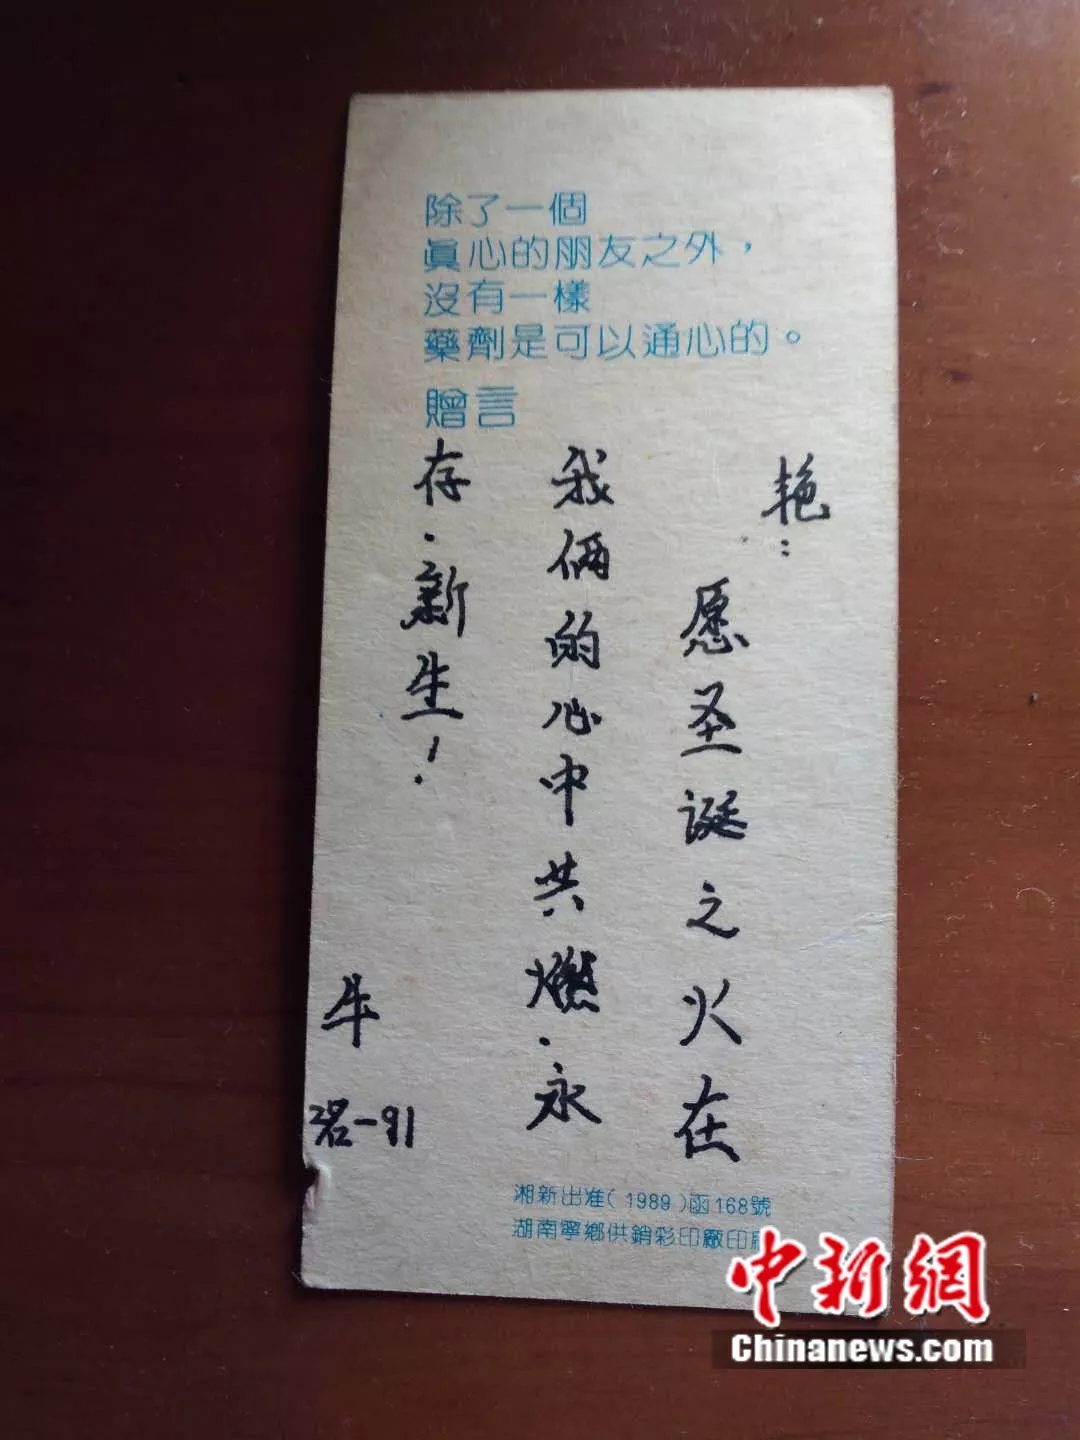 除了一個
眞心的朋友之外，
沒有一樣
藥劑是可以通心的。
贈言
艳：
愿圣诞之火在
我俩的心中共燃·永
存·新生！
牛
-91
湘新出准(1989)函168號
湖南寧鄉供銷彩印廠印
中新網
Chinanews.com